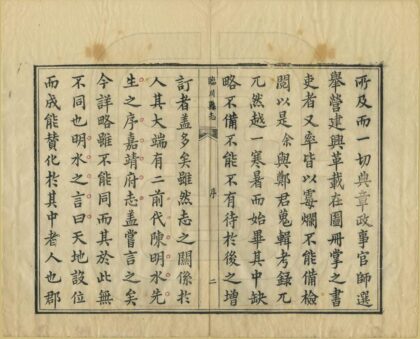 所及而一切典章政事官師選
舉營建興革載在圖册掌之書
吏者又率皆以霉爛不能備檢
閱以是余與鄭君蒐輯考録兀
兀然越一寒暑而始畢其中缺
略不備不能不有待於後之增
臨川縣志
序
二
訂者蓋多矣雖然志之關係於
人其大端有二前代陳明水先
生之序嘉靖府志蓋嘗言之矣
今詳略雖不能同而其於此無
不同也明水之言曰天地設位
而成能贊化於其中者人也郡